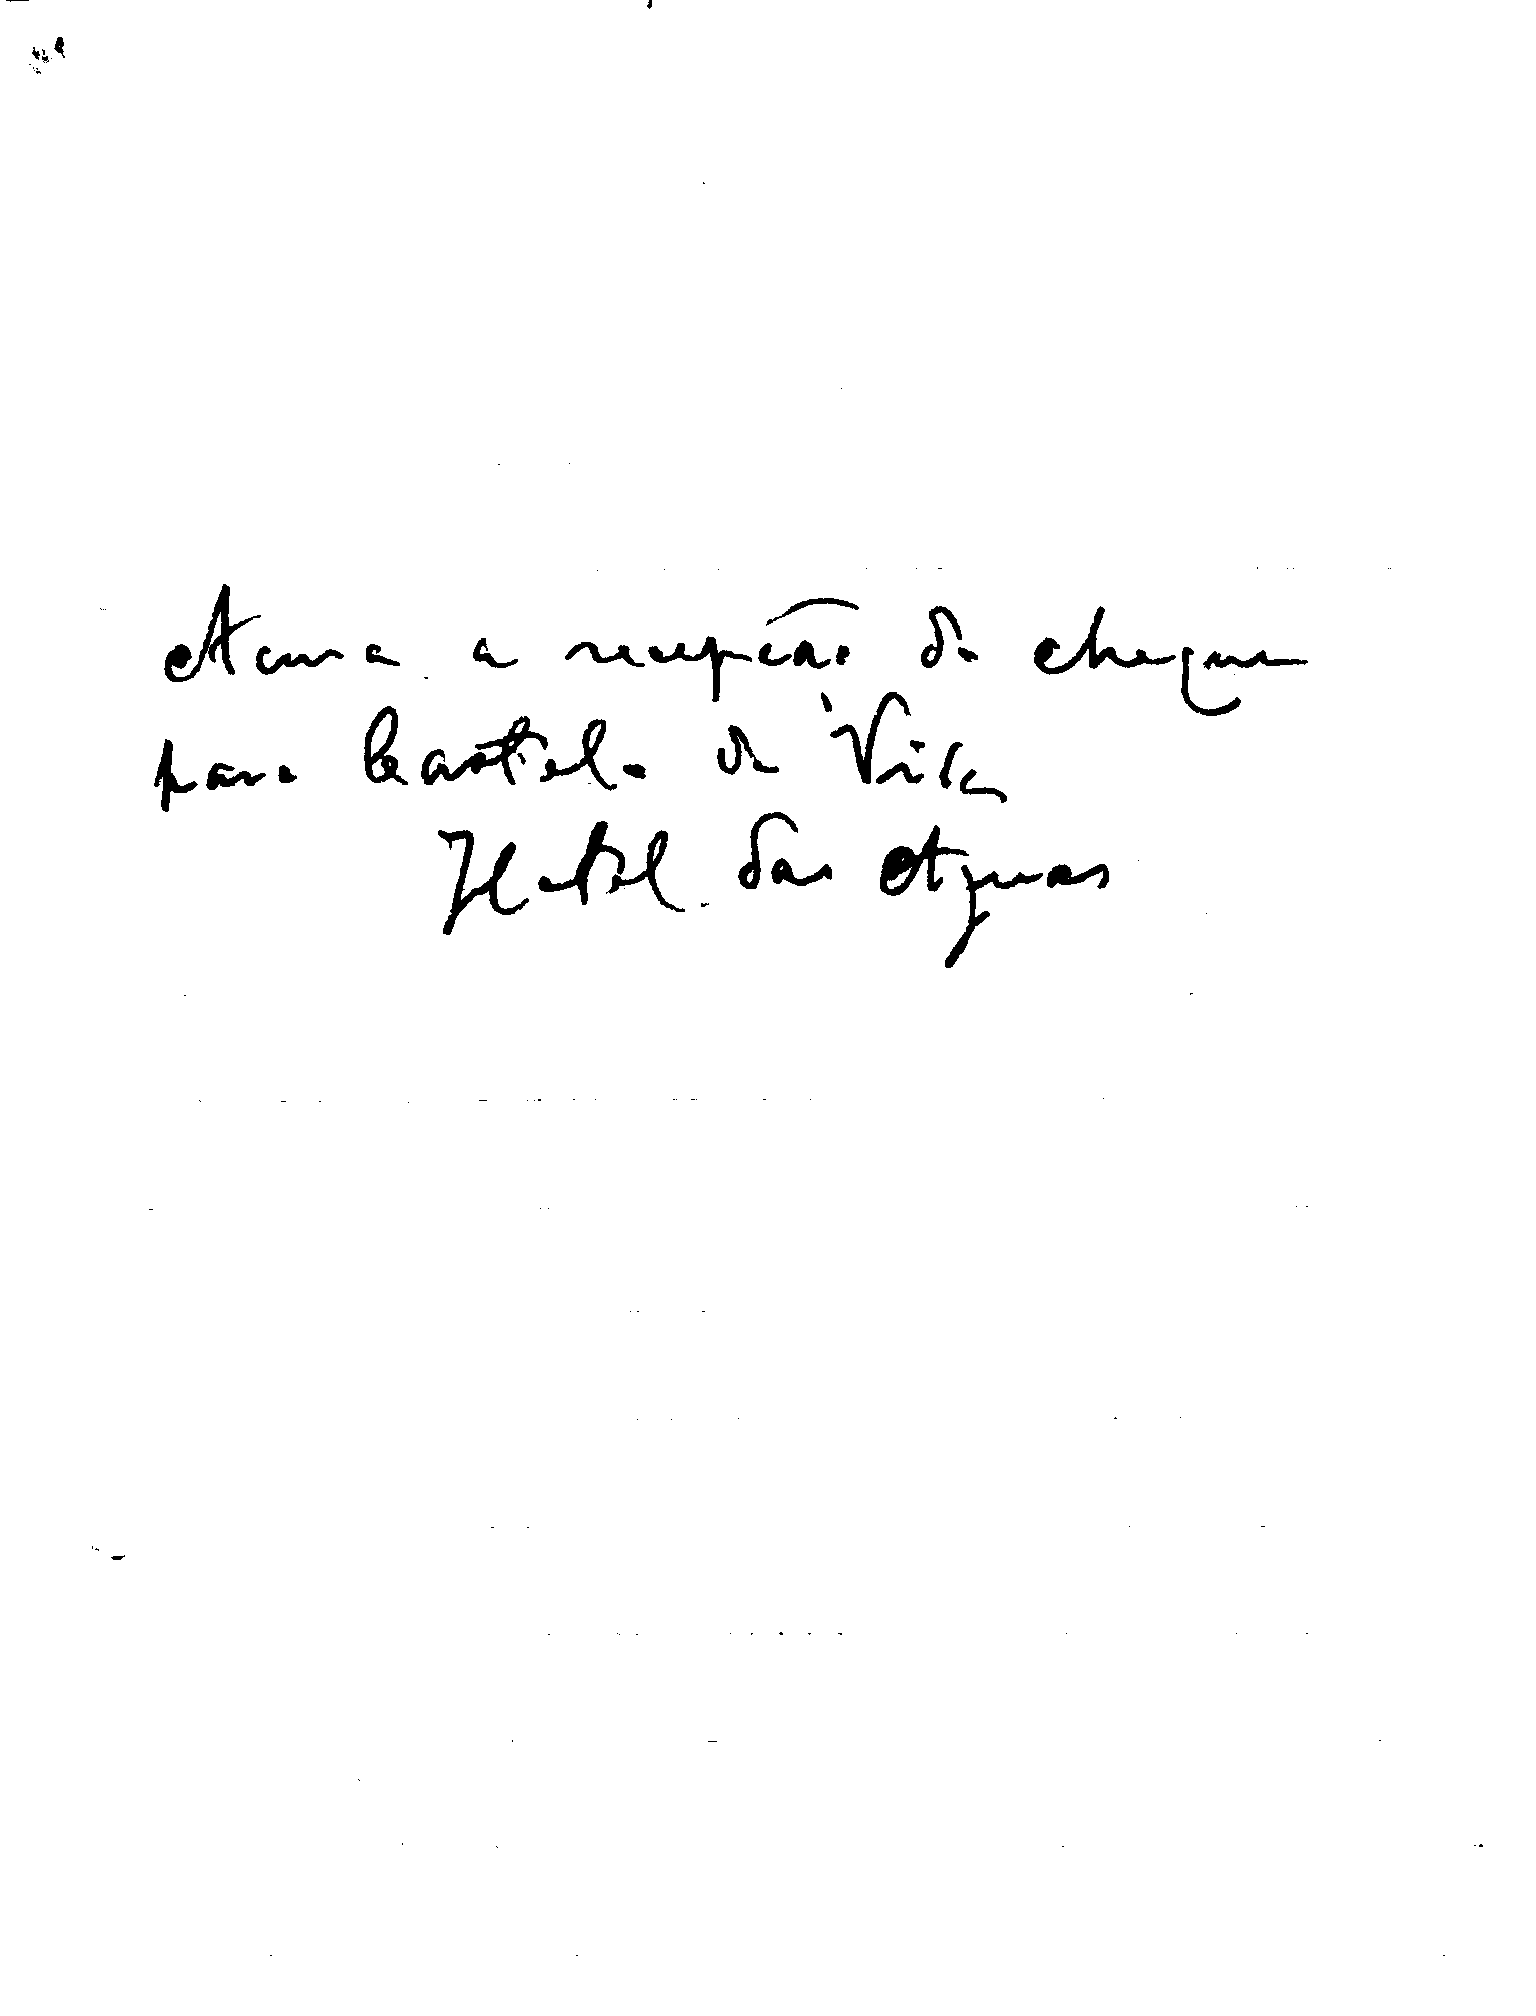 Acusa a recepção do cheque
para Castelo de Vide
Hotel das Aguas